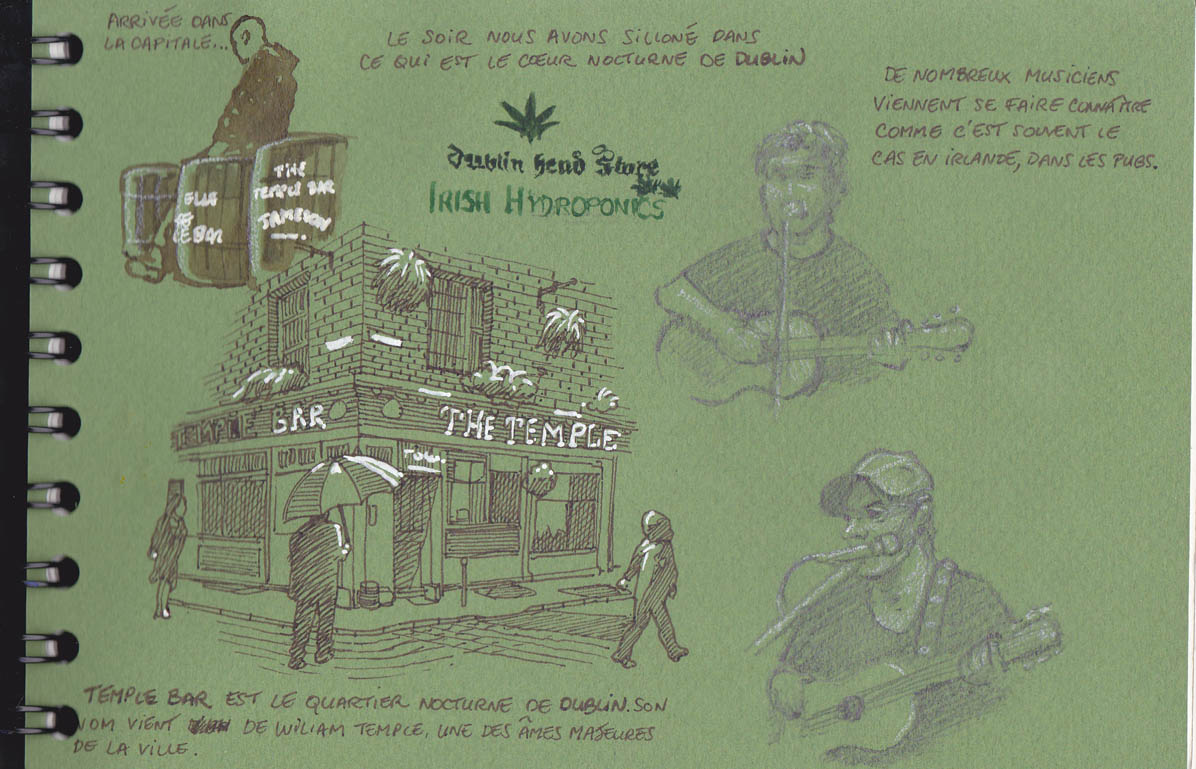 ARRIVÉE DANS
LA CAPITALE...
LE SOIR NOUS AVONS SILLONÉ DANS
CE QUI EST LE CŒUR NOCTURNE DE DUBLIN
DE NOMBREUX MUSICIENS
VIENNENT SE FAIRE CONNAÎTRE
COMME C'EST SOUVENT LE
CAS EN IRLANDE, DANS LES PUBS.
Dublin Head Store
IRISH HYDROPONICS
THE
TEMPLE BAR
JAMESON
BAR
TEMPLE BAR
THE TEMPLE
TEMPLE BAR EST LE QUARTIER NOCTURNE DE DUBLIN. SON
NOM VIENT DE WILIAM TEMPLE, UNE DES ÂMES MAJEURES
DE LA VILLE.